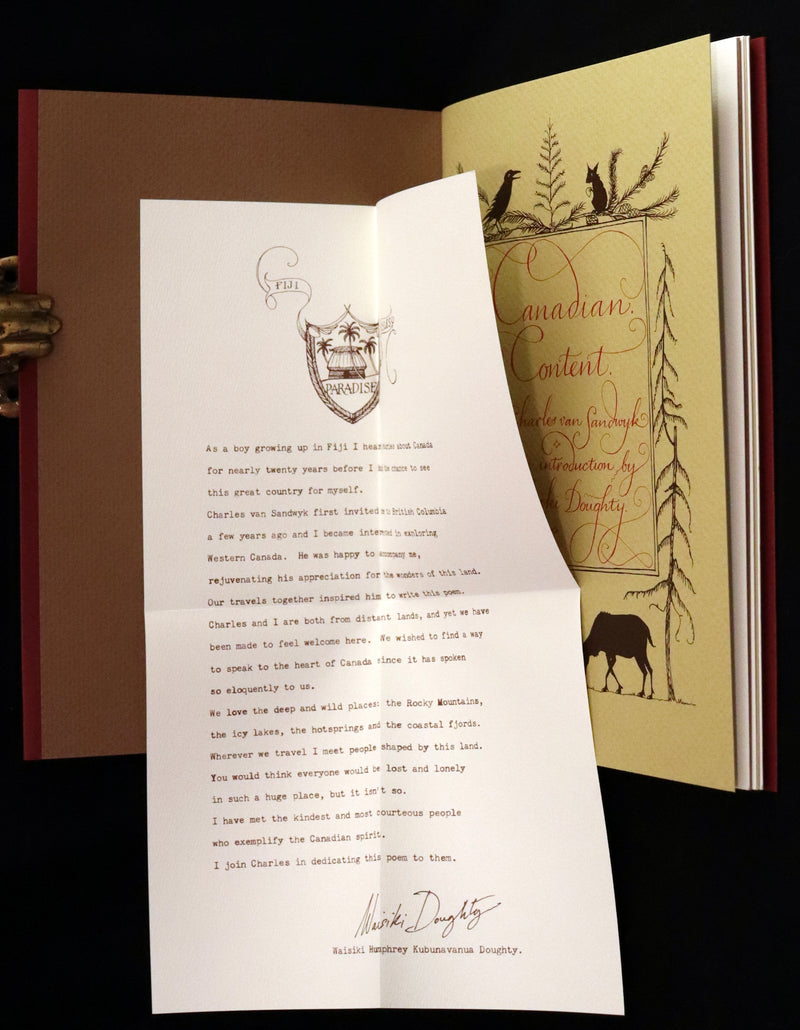 FIJI
PARADISE
As a boy growing up in Fiji I heard stories about Canada
for nearly twenty years before I had the chance to see
this great country for myself.
Charles van Sandwyk first invited me to British Columbia
a few years ago and I became interested in exploring
Western Canada. He was happy to accompany me,
rejuvenating his appreciation for the wonders of this land.
Our travels together inspired him to write this poem.
Charles and I are both from distant lands, and yet we have
been made to feel welcome here. We wished to find a way
to speak to the heart of Canada since it has spoken
so eloquently to us.
We love the deep and wild places: the Rocky Mountains,
the icy lakes, the hotsprings and the coastal fjords.
Wherever we travel I meet people shaped by this land.
You would think everyone would be lost and lonely
in such a huge place, but it isn't so.
I have met the kindest and most courteous people
who exemplify the Canadian spirit.
I join Charles in dedicating this poem to them.
Waisiki Doughty
Waisiki Humphrey Kubunavanua Doughty.
Canadian.
Content.
Charles van Sandwyk
introduction by
Doughty.